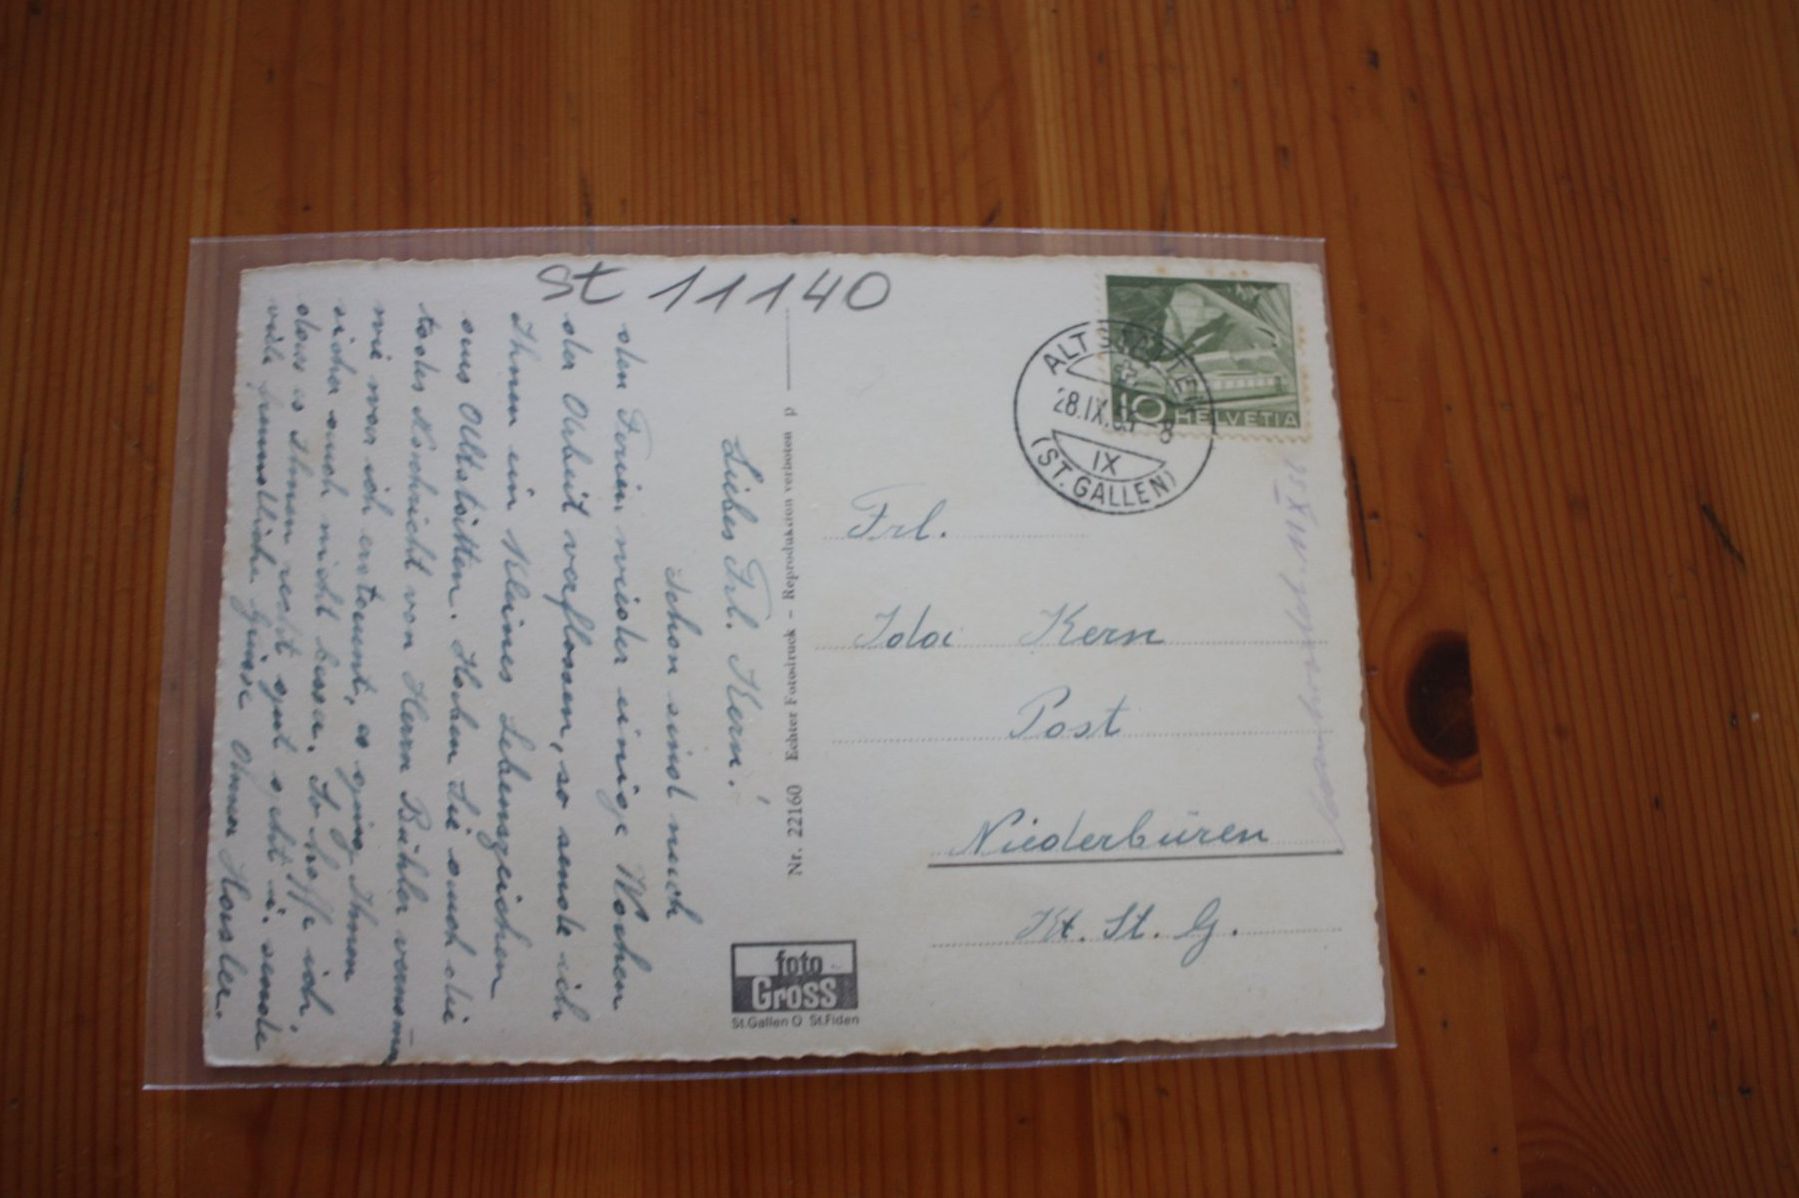 St 11140
Liebes Frl. Kern!
Schon sind nach
den Ferien wieder einige Wochen
der Arbeit verflossen, so sende ich
Ihnen ein kleines Lebenszeichen
aus Altstätten. Haben Sie auch die
Nachricht von Herrn Bühler vernommen
wie war ich erstaunt, es ging Ihnen
sicher auch nicht besser. So hoffe ich,
dass es Ihnen recht gut geht u. sende
viele freundliche Grüsse
Nr. 22160 Echter Fotodruck – Reproduktion verboten p
foto
Gross
St.Gallen O St.Fiden
ALTSTÄTTEN
28.IX. 8
IX
(ST. GALLEN)
10 HELVETIA
Frl.
Ida Kern
Post
Niederbüren
Kt. St. G.